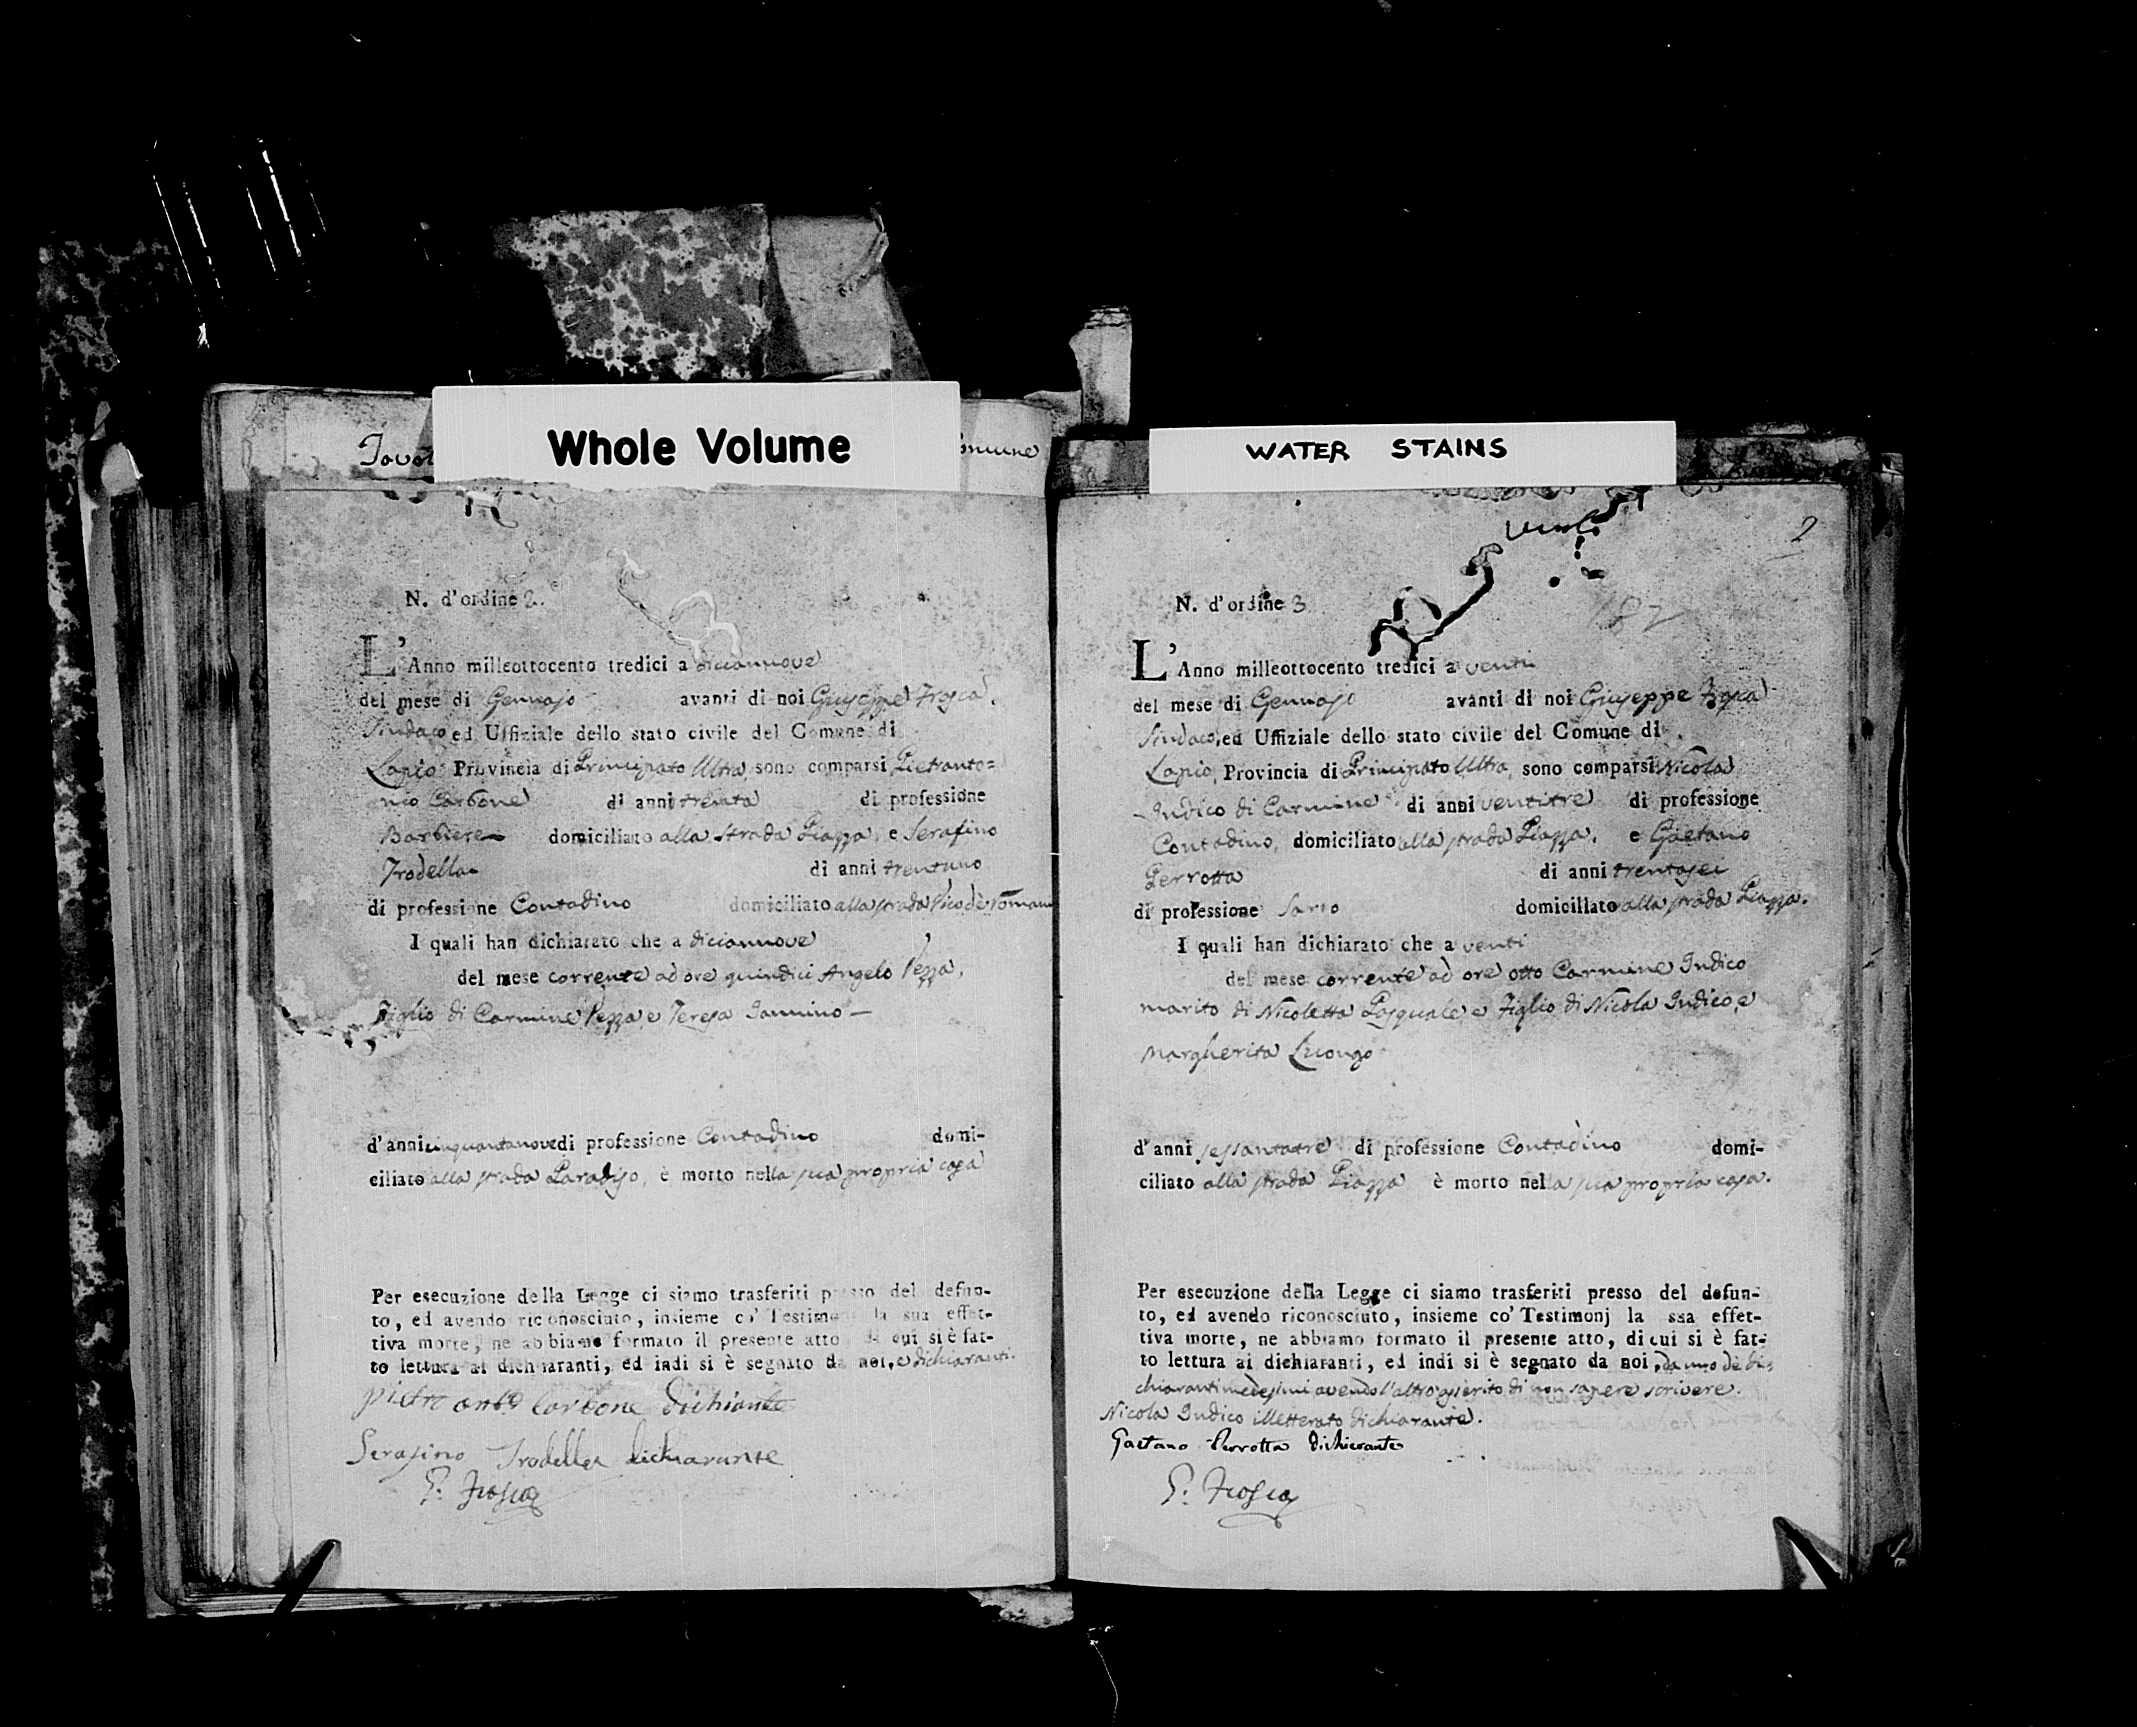 Whole Volume
WATER STAINS
omune
N. d'ordine 2.
L'Anno milleottocento tredici a diciannove
del mese di Gennajo avanti di noi Giuseppe Frosca
Sindaco ed Uffiziale dello stato civile del Comune di
Lapio Provincia di Principato Ultra, sono comparsi Pietranto=
nio Carbone di anni trenta di professione
Barbiere domiciliato alla strada Piazza, e Serafino
Trodella di anni trentuno
di professione Contadino domiciliato alla strada Vico de
I quali han dichiarato che a diciannove
del mese corrente ad ore quindici Angelo Pezza,
Figlio di Carmine Pezza, e Teresa Iannino
d'anni cinquantanove di professione Contadino domi-
ciliato alla strada Paradiso, è morto nella sua propria casa
Per esecuzione della Legge ci siamo trasferiti presso del defun-
to, ed avendo riconosciuto, insieme co' Testimonj la sua effet-
tiva morte, ne abbiamo formato il presente atto di cui si è fat-
to lettura ai dichiaranti, ed indi si è segnato da noi, e dichiaranti.
pietro ant° Carbone dichiante
Serafino Trodella dichiarante
G. Frosca
2
182
N. d'ordine 3
L'Anno milleottocento tredici a venti
del mese di Gennajo avanti di noi Giuseppe Frosca
Sindaco, ed Uffiziale dello stato civile del Comune di
Lapio, Provincia di Principato Ultra, sono comparsi Nicola
Indico di Carmine di anni ventitre di professione
Contadino, domiciliato alla strada Piazza, e Gaetano
Perrotta di anni trentasei
di professione Sarto domiciliato alla strada Piazza.
I quali han dichiarato che a venti
del mese corrente ad ore otto Carmine Indico
marito di Nicoletta Pasquale e Figlio di Nicola Indico, e
Margherita Luongo
d'anni sessantatre di professione Contadino domi-
ciliato alla strada Piazza è morto nella sua propria casa.
Per esecuzione della Legge ci siamo trasferiti presso del defun-
to, ed avendo riconosciuto, insieme co' Testimonj la ssa effet-
tiva morte, ne abbiamo formato il presente atto, di cui si è fat-
to lettura ai dichiaranti, ed indi si è segnato da noi, da uno de di=
chiaranti medesimi avendo l'altro asserito di non sapere scrivere.
Nicola Indico illetterato dichiarante.
Gaetano Perrotta dichiarante
G. Frosca